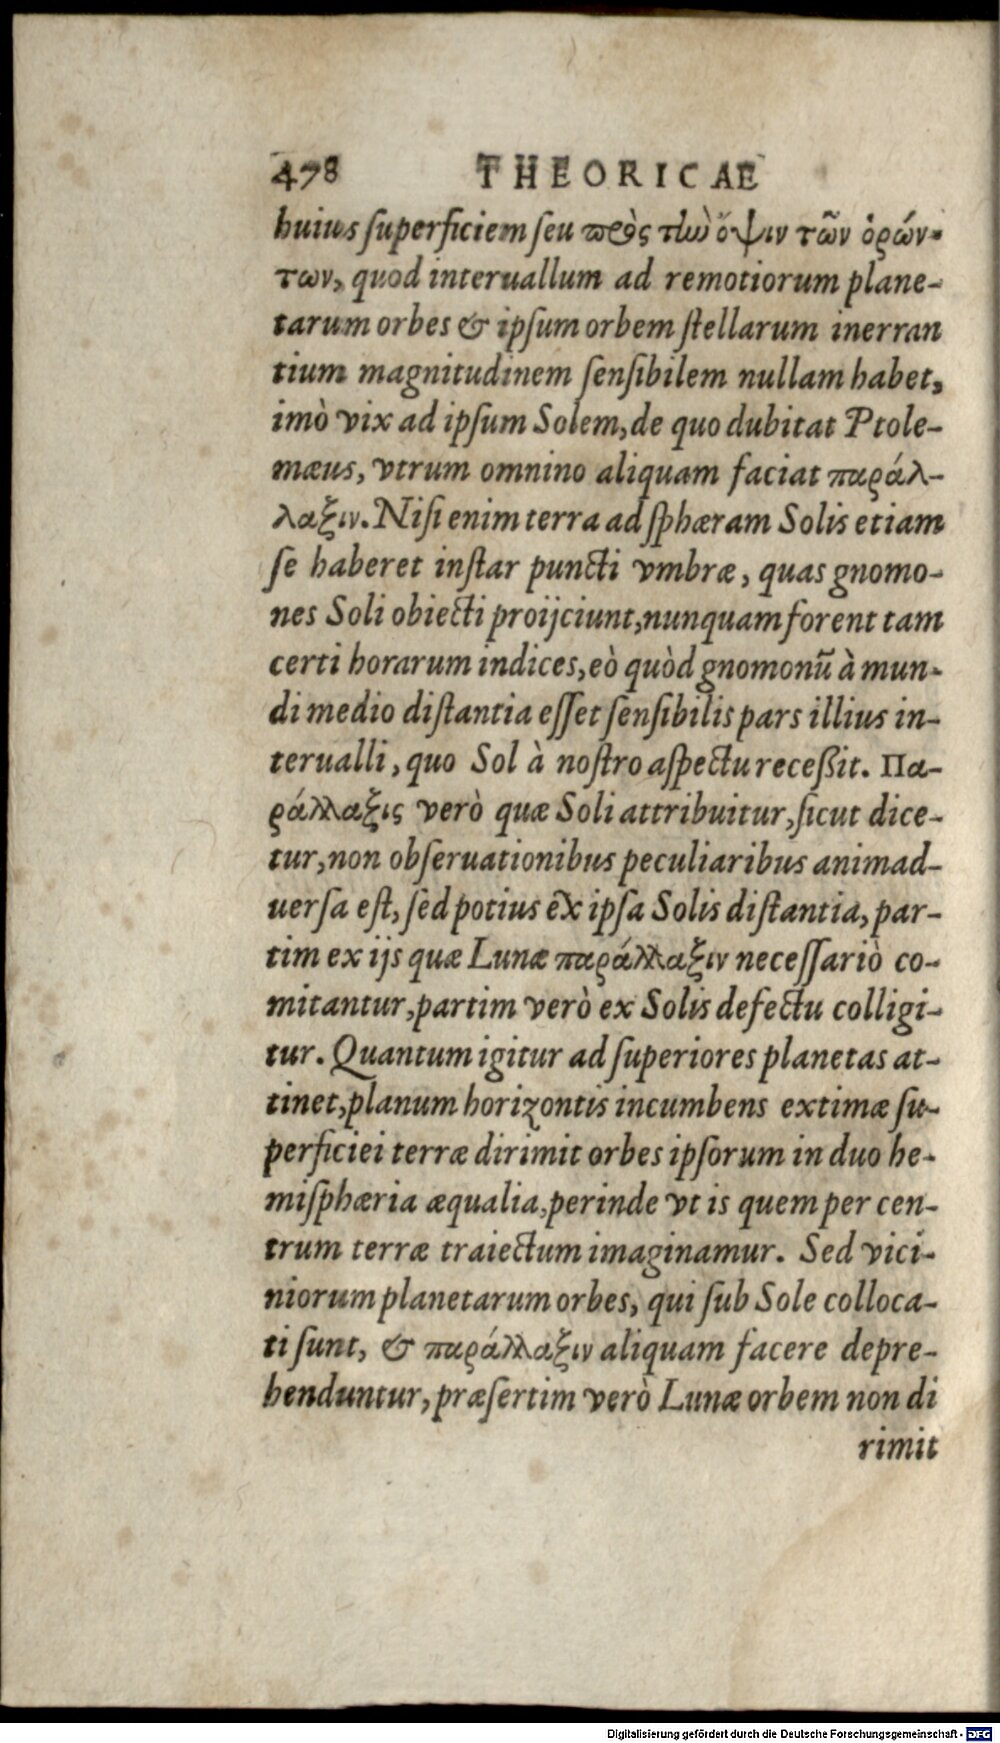 478 THEORICAE
huius ſuperficiem ſeu πρὸς τὴν ὄψιν τῶν ὁρών-
των, quod interuallum ad remotiorum plane-
tarum orbes & ipſum orbem ſtellarum inerran
tium magnitudinem ſenſibilem nullam habet,
imò vix ad ipſum Solem, de quo dubitat Ptole-
mæus, vtrum omnino aliquam faciat παράλ-
λαξιν. Niſi enim terra ad ſphæram Solis etiam
ſe haberet inſtar puncti vmbræ, quas gnomo-
nes Soli obiecti proijciunt, nunquam forent tam
certi horarum indices, eò quòd gnomonũ à mun-
di medio diſtantia eſſet ſenſibilis pars illius in-
terualli, quo Sol à noſtro aſpectu receßit. Πα-
ράλλαξις verò quæ Soli attribuitur, ſicut dice-
tur, non obſeruationibus peculiaribus animad-
uerſa eſt, ſed potius ex ipſa Solis diſtantia, par-
tim ex ijs quæ Lunæ παράλλαξιν neceſſariò co-
mitantur, partim verò ex Solis defectu colligi-
tur. Quantum igitur ad ſuperiores planetas at-
tinet, planum horizontis incumbens extimæ ſu-
perficiei terræ dirimit orbes ipſorum in duo he-
miſphæria æqualia, perinde vt is quem per cen-
trum terræ traiectum imaginamur. Sed vici-
niorum planetarum orbes, qui ſub Sole colloca-
ti ſunt, & παράλλαξιν aliquam facere depre-
henduntur, præſertim verò Lunæ orbem non di
rimit
Digitalisierung gefördert durch die Deutsche Forschungsgemeinschaft - DFG